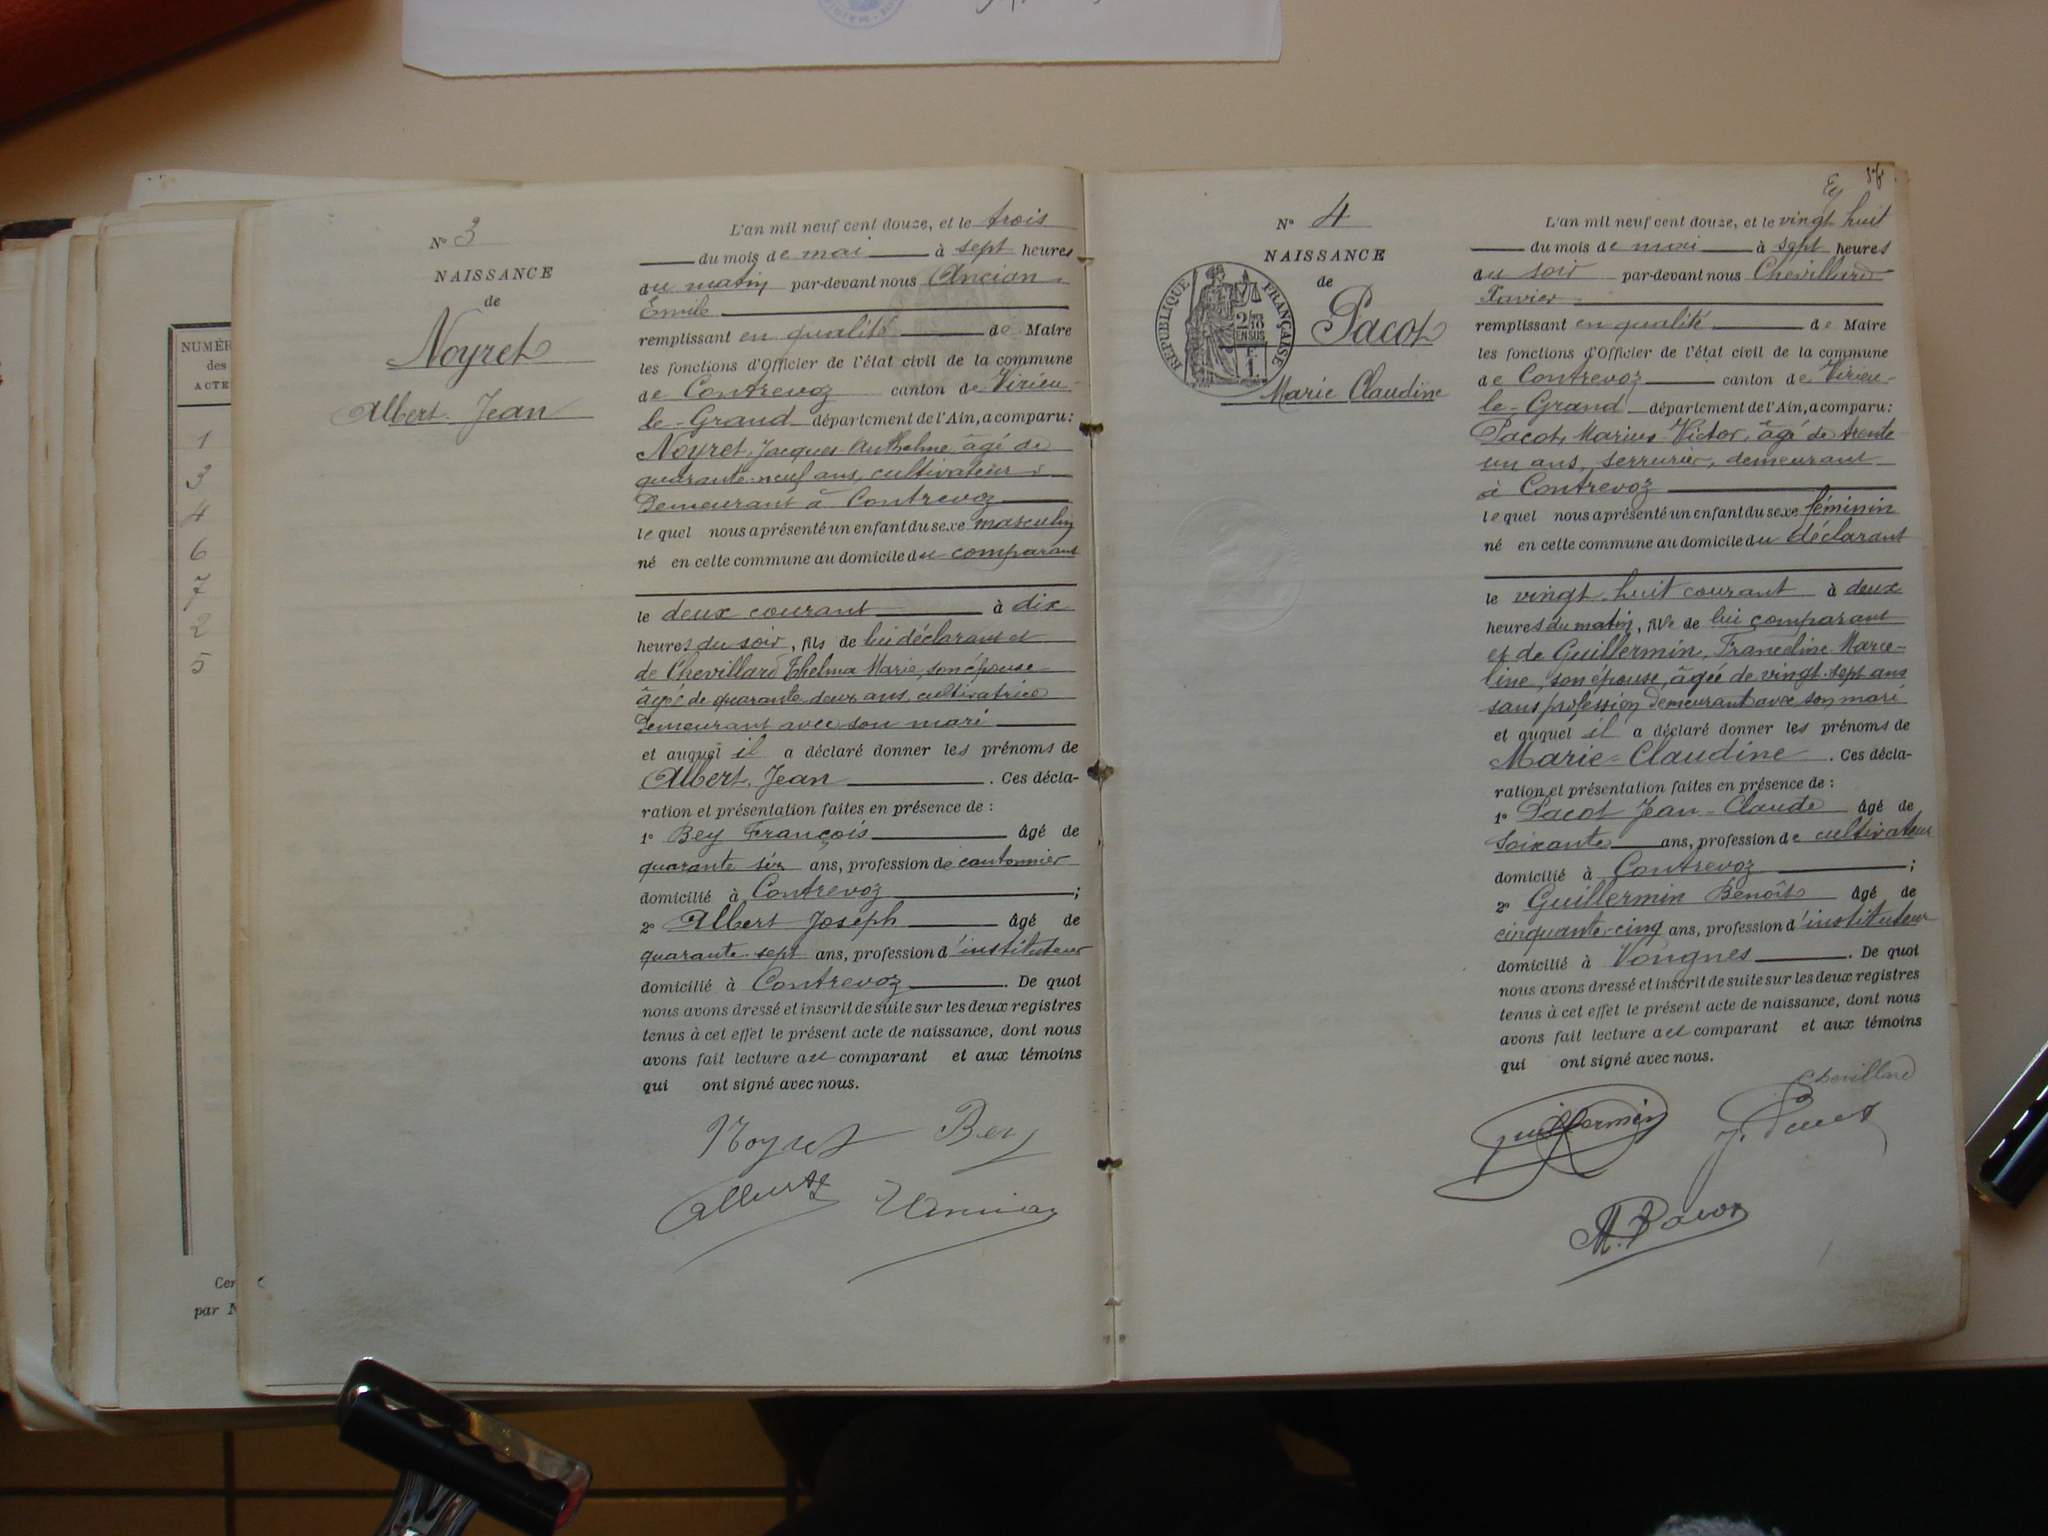 NUMÉR
des
ACTE
1
3
4
6
7
2
5
Cer
par N
N° 3
NAISSANCE
de
Noyret
Albert Jean
L'an mil neuf cent douze, et le trois
du mois de mai à sept heures
du matin par-devant nous Ancian
Emile
remplissant en qualité de Maire
les fonctions d'Officier de l'état civil de la commune
de Contrevoz canton de Virieu-
le-Grand département de l'Ain, a comparu:
Noyret Jacques Anthelme âgé de
quarante-neuf ans, cultivateur
demeurant à Contrevoz
lequel nous a présenté un enfant du sexe masculin
né en cette commune au domicile du comparant
le deux courant à dix
heures du soir, fils de lui déclarant et
de Chevillard Thelma Marie, son épouse
âgée de quarante deux ans, cultivatrice
demeurant avec son mari
et auquel il a déclaré donner les prénoms de
Albert, Jean. Ces décla-
ration et présentation faites en présence de :
1° Bey François âgé de
quarante six ans, profession de cantonnier
domicilié à Contrevoz ;
2° Albert Joseph âgé de
quarante-sept ans, profession d'instituteur
domicilié à Contrevoz. De quoi
nous avons dressé et inscrit de suite sur les deux registres
tenus à cet effet le présent acte de naissance, dont nous
avons fait lecture au comparant et aux témoins
qui ont signé avec nous.
Noyret Bey
Albert
N° 4
NAISSANCE
de
RÉPUBLIQUE FRANÇAISE
2/10
EN SUS
Pacot
Marie Claudine
L'an mil neuf cent douze, et le vingt huit
du mois de mai à sept heures
du soir par-devant nous Chevillard
Xavier
remplissant en qualité de Maire
les fonctions d'Officier de l'état civil de la commune
de Contrevoz canton de Virieu-
le-Grand département de l'Ain, a comparu:
Pacot, Marius Victor, âgé de trente
un ans, serrurier, demeurant
à Contrevoz
lequel nous a présenté un enfant du sexe féminin
né en cette commune au domicile du déclarant
le vingt huit courant à deux
heures du matin, fille de lui comparant
et de Guillermin, Francline Marce-
line, son épouse, âgée de vingt-sept ans
sans profession demeurant avec son mari
et auquel il a déclaré donner les prénoms de
Marie-Claudine. Ces décla-
ration et présentation faites en présence de :
1° Pacot Jean-Claude âgé de
soixante ans, profession de cultivateur
domicilié à Contrevoz ;
2° Guillermin Benoît âgé de
cinquante-cinq ans, profession d'instituteur
domicilié à Vongnes. De quoi
nous avons dressé et inscrit de suite sur les deux registres
tenus à cet effet le présent acte de naissance, dont nous
avons fait lecture au comparant et aux témoins
qui ont signé avec nous.
Chevillard
Guillermin J. Pacot
M. Pacot